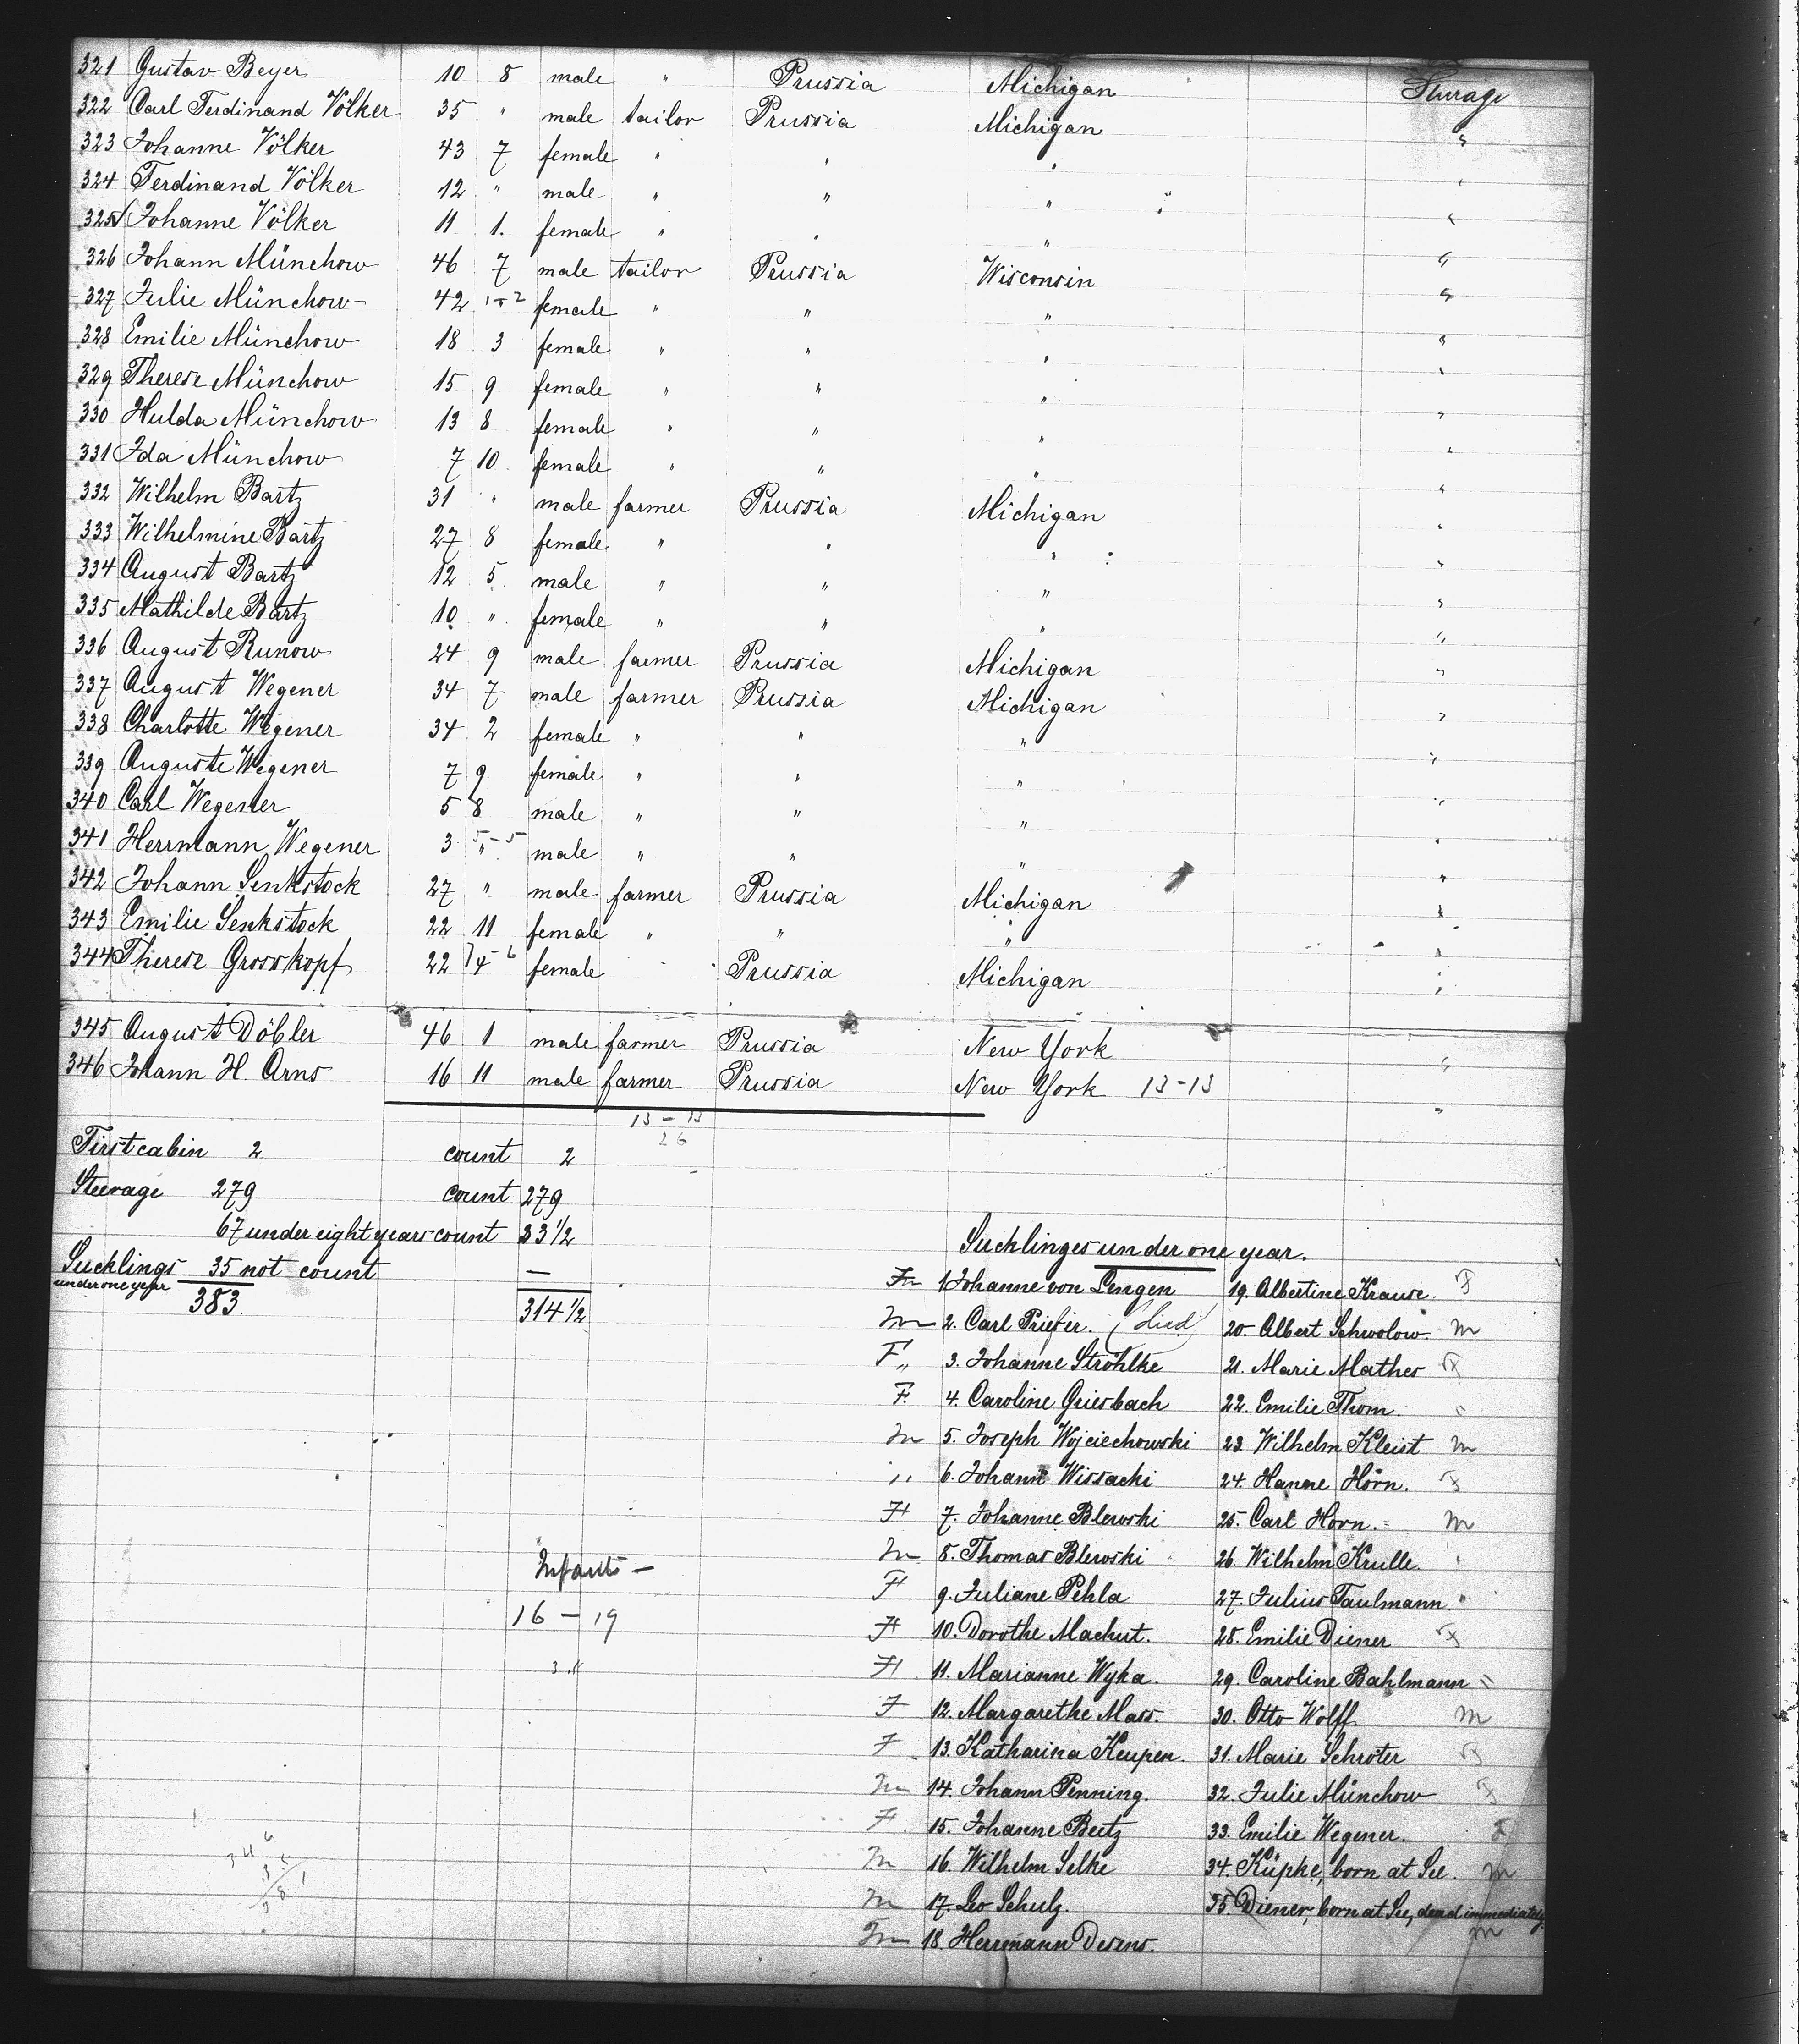 321 Gustav Beyer 10 8 male " Prussia Michigan Sturage
322 Carl Ferdinand Völker 35 " male tailor Prussia Michigan "
323 Johanne Völker 43 7 female " " " "
324 Ferdinand Völker 12 " male " " " "
325 Johanne Völker 11 1. female " " " "
326 Johann Münchow 46 7 male tailor Prussia Wisconsin "
327 Julie Münchow 42 female " " " "
328 Emilie Münchow 18 3 female " " " "
329 Therese Münchow 15 9 female " " " "
330 Hulda Münchow 13 8 female " " " "
331 Ida Münchow 7 10 female " " " "
332 Wilhelm Bartz 31 " male farmer Prussia Michigan "
333 Wilhelmine Bartz 27 8 female " " " "
334 August Bartz 12 5 male " " " "
335 Mathilde Bartz 10 " female " " " "
336 August Runow 24 9 male farmer Prussia Michigan "
337 August Wegener 34 7 male farmer Prussia Michigan "
338 Charlotte Wegener 34 2 female " " " "
339 Auguste Wegener 7 9 female " " " "
340 Carl Wegener 5 8 male " " " "
341 Herrmann Wegener 3 " male " " " "
342 Johann Senkstock 27 " male farmer Prussia Michigan "
343 Emilie Senkstock 22 11 female " " " "
344 Therese Grosskopf 22 4 female Prussia Michigan "
345 August Döbler 46 1 male farmer Prussia New York "
346 Johann H. Arns 16 11 male farmer Prussia New York 13-13 "
13-13
26
First cabin 2 count 2
Steerage 279 count 279
67 under eight years count 33 1/2
Sucklings 35 not count —
under one year
383. 314 1/2
Sucklinges under one year.
1. Johanne von Lengen 19. Albertine Krause F
m 2. Carl Priefer. (died) 20. Albert Schwolow m
F 3. Johanne Ströhlke 21. Marie Mathes F
F. 4. Caroline Griesbach 22. Emilie Thom. "
m 5. Joseph Wojciechowski 23. Wilhelm Kleist m
" 6. Johann Wissacki 24. Hanne Horn. F
F 7. Johanne Blewski 25. Carl Horn. m
m 8. Thomas Blewski 26. Wilhelm Krulle. "
F 9. Juliane Pehla 27. Julius Taulmann. "
F 10. Dorothe Machut. 28. Emilie Diener F
F 11. Marianne Wyka. 29. Caroline Bahlmann "
F 12. Margarethe Mass. 30. Otto Wolff m
F 13. Katharina Keupen. 31. Marie Schroter F
m 14. Johann Penning. 32. Julie Münchow F
F 15. Johanne Beitz 33. Emilie Wegener. F
m 16. Wilhelm Selke 34. Küpke, born at See. m
m 17. Leo Schulz. 35. Diener, born at See, dead immediately. m
m 18. Herrmann Desens.
Infants —
16 — 19